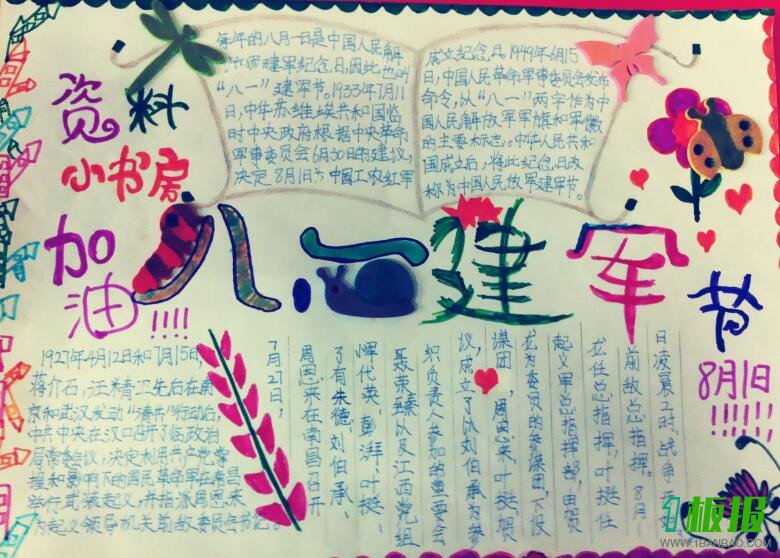 资料
小书房
加油!!!!
每年的八月一日是中国人民解
建军纪念日,因此也叫
“八一”建军节。1933年7月11
日,中华苏维埃共和国临
时中央政府根据中央革命
军事委员会6月30日的建议,
决定8月1日为中国工农红军
成立纪念日。1949年6月15
日,中国人民革命军事委员会发布
命令,以“八一”两字作为中
国人民解放军军旗和军徽
的主要标志。中华人民共和
国成立后,将此纪念日改
称为中国人民放军建军节。
八一建军
节
8月1日
!!!!!!
1927年4月12日和7月15日,
蒋介石,汪精卫先后在南
京和武汉发动“清共”行动后,
中共中央在汉口召开了临政治
局常委会议,决定利用共产党掌
握和影响下的国民革命军在南昌
举行武装起义,并指派周恩来
为起义领导机关前敌委员会书记。
7月21日,
周恩来在南昌召开
了有朱德,刘伯承,
恽代英,彭湃,叶挺,
聂荣臻以及江西党组
织负责人参加的重要会
议,成立了以刘伯承为参
谋团,周恩来,叶挺贺
龙为委员的参谋团,下设
起义军总指挥部,由贺
龙任总指挥,叶挺任
前敌总指挥。8月
日凌晨2时,战争
板报
WWW.1BANBAO.COM